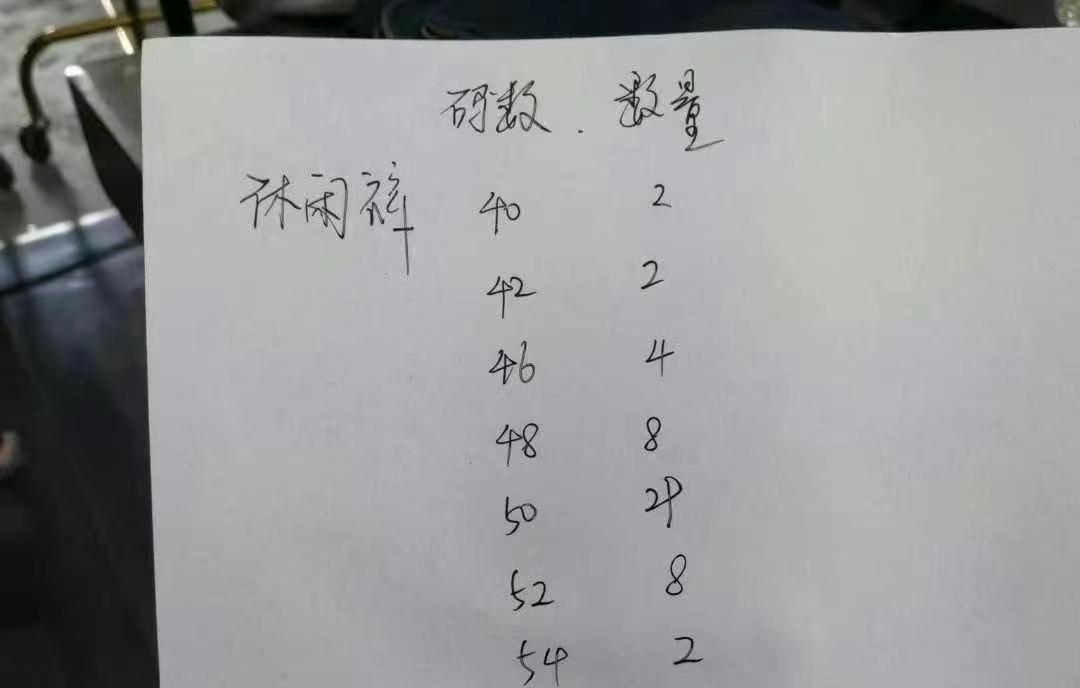 码数. 数量
休闲裤 40 2
42 2
46 4
48 8
50
52 8
54 2